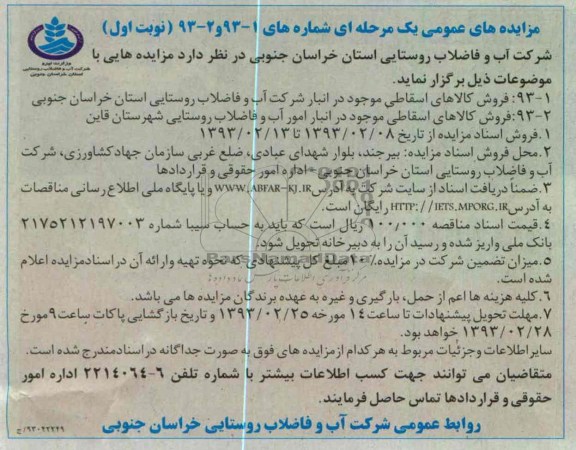 مزایده های عمومی یک مرحله ای شماره های ۱-۹۳و۲-۹۳ (نوبت اول)
وزارت نیرو
شرکت آب و فاضلاب روستایی
استان خراسان جنوبی
شرکت آب و فاضلاب روستایی استان خراسان جنوبی در نظر دارد مزایده هایی با
موضوعات ذیل برگزار نماید.
۱-۹۳: فروش کالاهای اسقاطی موجود در انبار شرکت آب و فاضلاب روستایی استان خراسان جنوبی
۲-۹۳: فروش کالاهای اسقاطی موجود در انبار امور آب و فاضلاب روستایی شهرستان قاین
۱.فروش اسناد مزایده از تاریخ ۱۳۹۳/۰۲/۰۸ تا ۱۳۹۳/۰۲/۱۳
۲.محل فروش اسناد مزایده: بیرجند، بلوار شهدای عبادی، ضلع غربی سازمان جهادکشاورزی، شرکت
آب و فاضلاب روستایی استان خراسان جنوبی - اداره امور حقوقی و قراردادها
۳.ضمناً دریافت اسناد از سایت شرکت به آدرس WWW.ABFAR-KJ.IR و یا پایگاه ملی اطلاع رسانی مناقصات
به آدرس HTTP://IETS.MPORG.IR رایگان است.
۴.قیمت اسناد مناقصه ۱۰۰/۰۰۰ ریال است که باید به حساب سیبا شماره ۲۱۷۵۲۱۲۱۹۷۰۰۳
بانک ملی واریز شده و رسید آن را به دبیرخانه تحویل شود.
۵.میزان تضمین شرکت در مزایده ۲۰٪ مبلغ کل پیشنهادی که نحوه تهیه وارائه آن دراسنادمزایده اعلام
شده است.
۶.کلیه هزینه ها اعم از حمل، بارگیری و غیره به عهده برندگان مزایده ها می باشد.
۷.مهلت تحویل پیشنهادات تا ساعت ۱۴ مورخه ۱۳۹۳/۰۲/۲۵ و تاریخ بازگشایی پاکات ساعت ۹ مورخ
۱۳۹۳/۰۲/۲۸ خواهد بود.
سایراطلاعات وجزئیات مربوط به هرکدام ازمزایده های فوق به صورت جداگانه دراسنادمندرج شده است.
متقاضیان می توانند جهت کسب اطلاعات بیشتر با شماره تلفن ۶-۲۲۱۴۰۶۴ اداره امور
حقوقی و قراردادها تماس حاصل فرمایند.
روابط عمومی شرکت آب و فاضلاب روستایی خراسان جنوبی
۹۳۰۲۲۴۹/ج